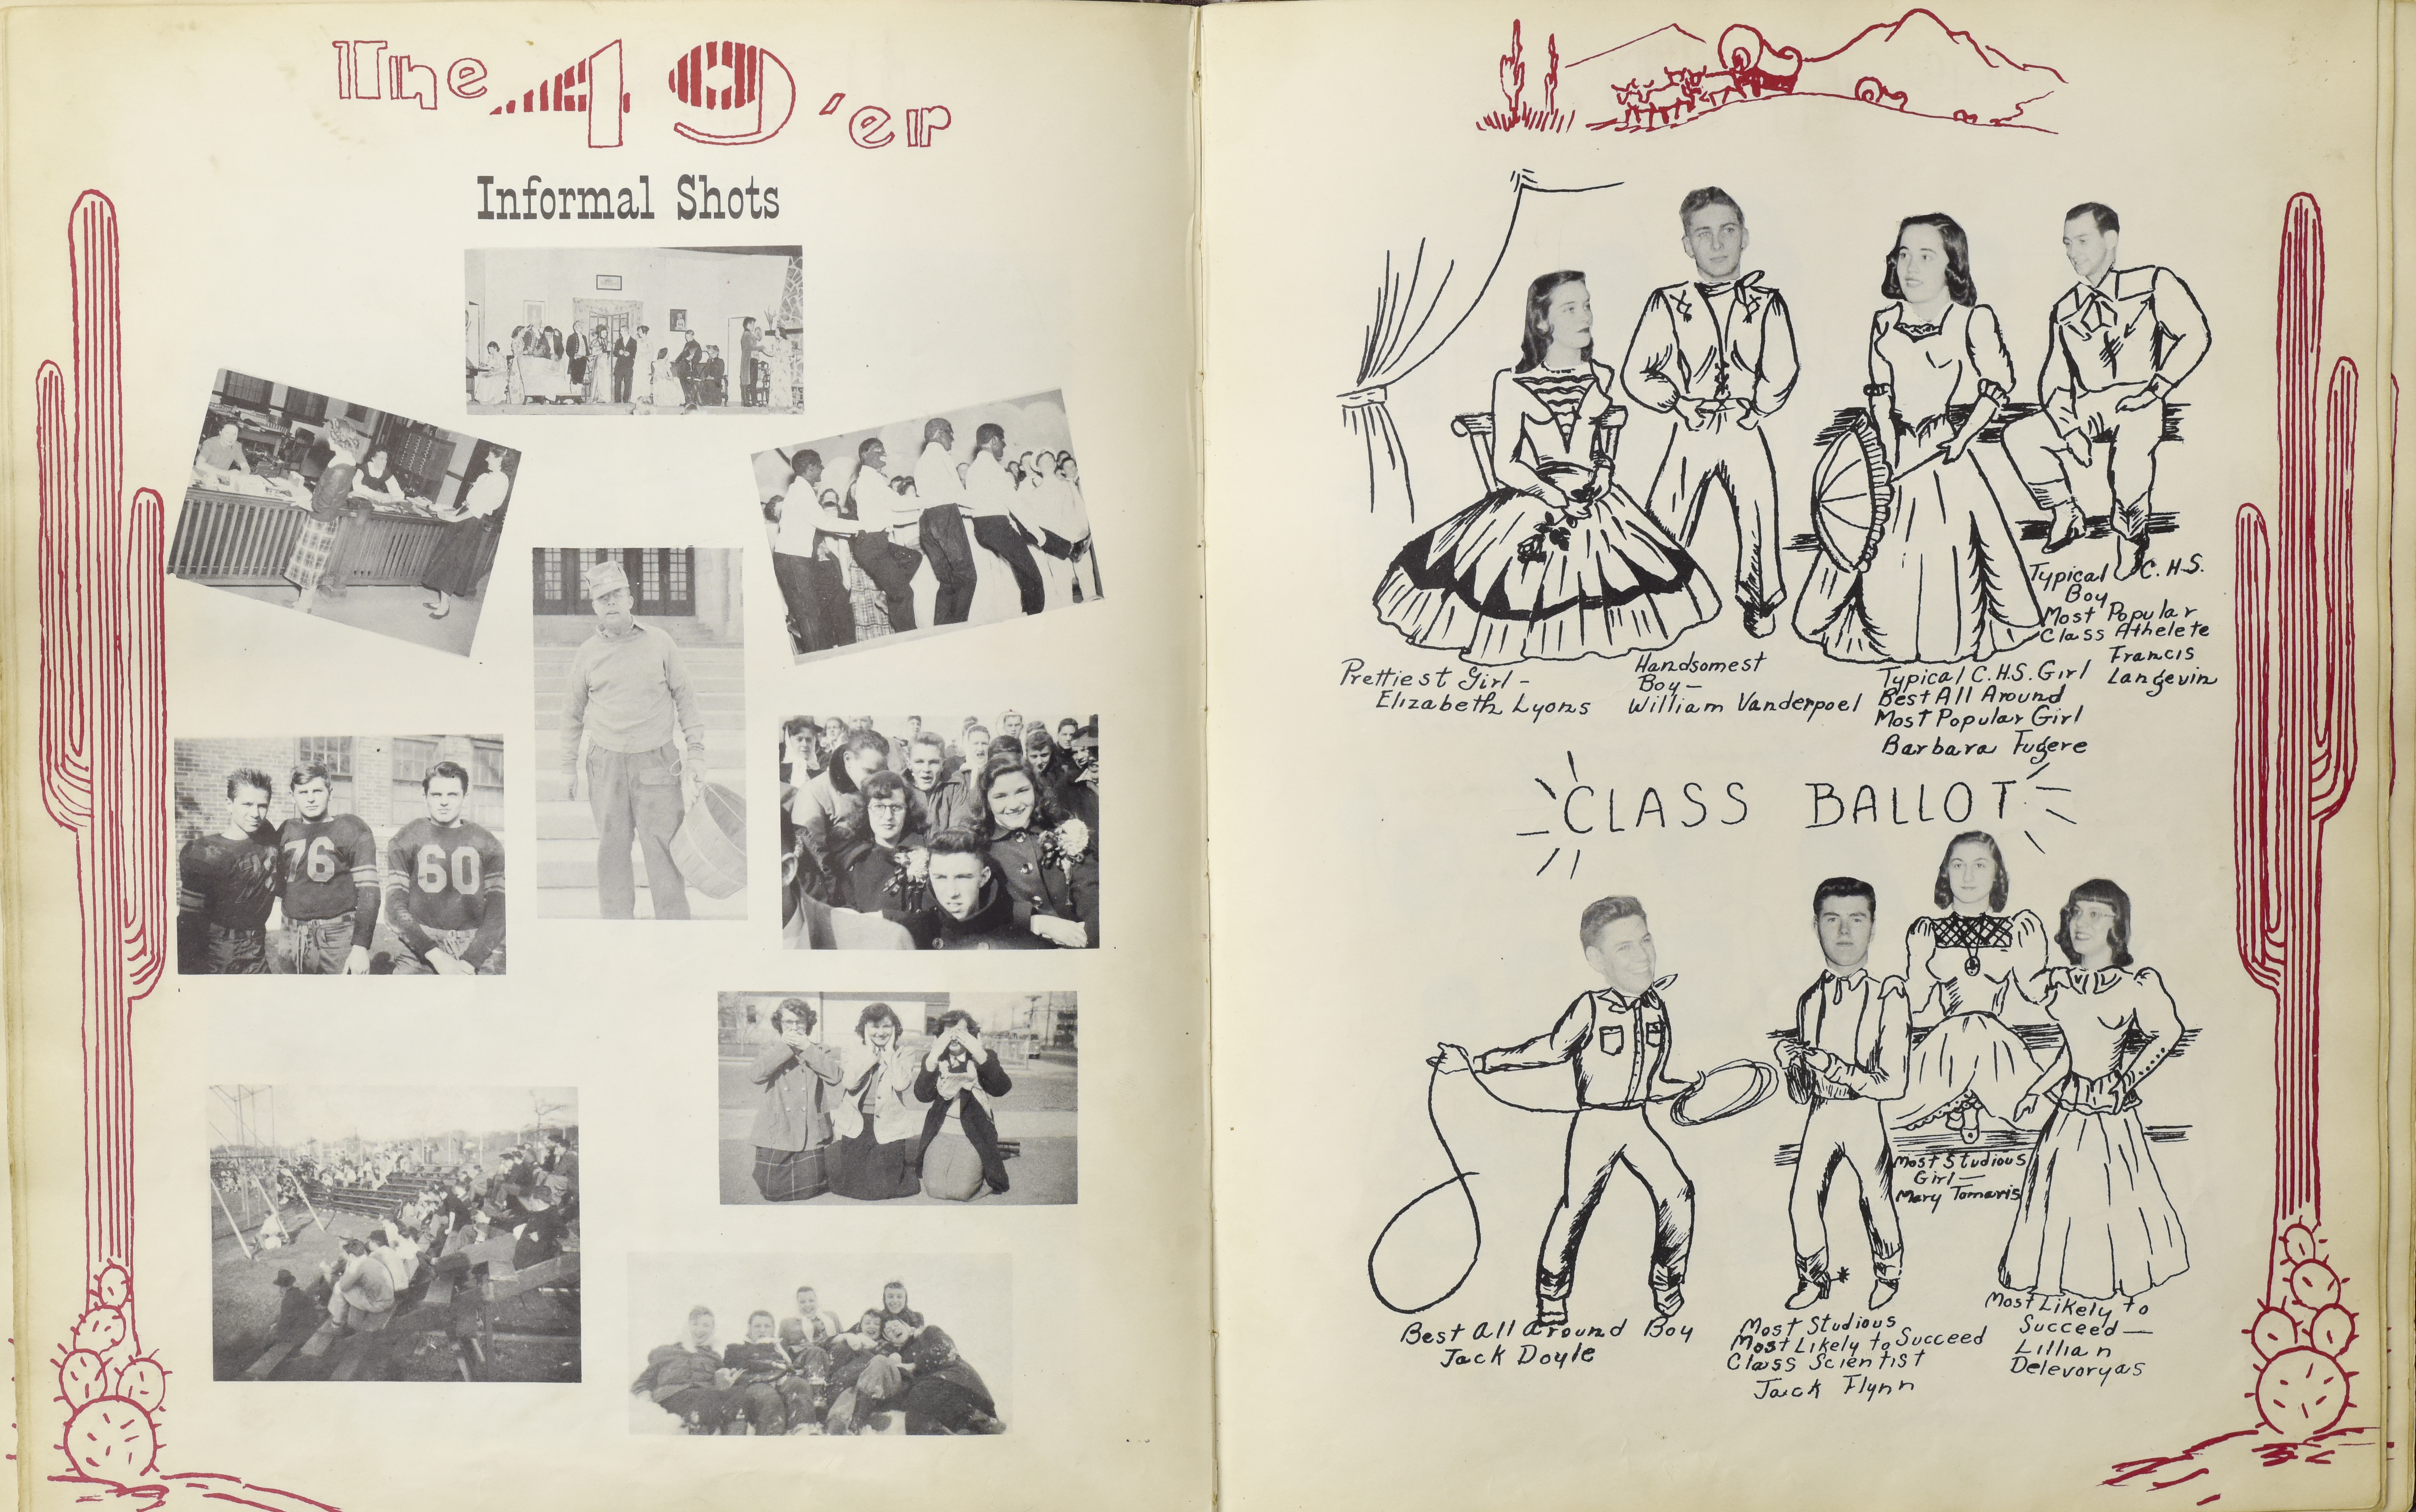 The 49'er
Informal Shots
76
60
Prettiest Girl -
Elizabeth Lyons
Handsomest
Boy -
William Vanderpoel
Typical C.H.S. Girl
Best All Around
Most Popular Girl
Barbara Fugere
Typical C.H.S.
Boy
Most Popular
Class Athelete
Francis
Langevin
CLASS BALLOT
Best All Around Boy
Jack Doyle
Most Studious
Most Likely to Succeed
Class Scientist
Jack Flynn
Most Studious
Girl —
Mary Tomaris
Most Likely to
Succeed —
Lillian
Delevoryas